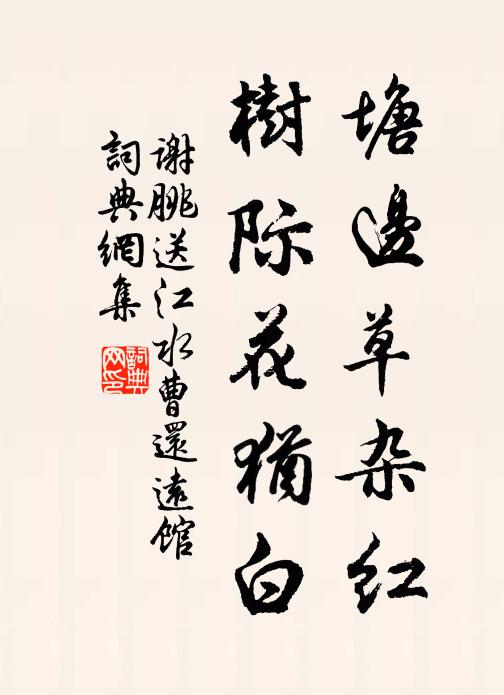 塘邊草杂红
樹际花猶白
谢朓送江水曹還遠馆
詞典網集
詞典網印